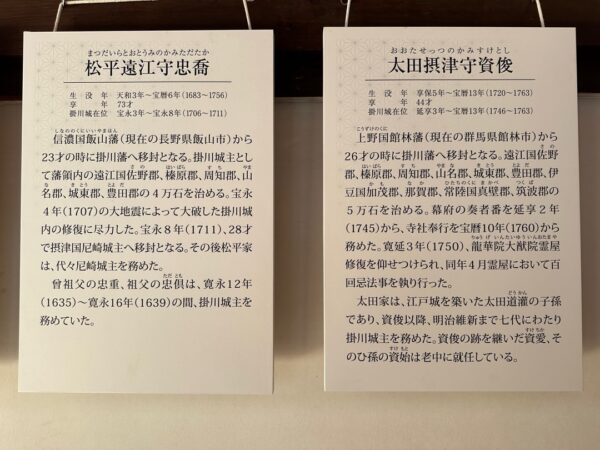 まつだいらとおとうみのかみただたか
松平遠江守忠喬
生没年 天和3年～宝暦6年(1683～1756)
享年 73才
掛川城在位 宝永3年～宝永8年(1706～1711)
しなののくにいいやまはん
信濃国飯山藩(現在の長野県飯山市)から
23才の時に掛川藩へ移封となる。掛川城主とし
さの はいばら すち やま
て藩領内の遠江国佐野郡、榛原郡、周知郡、山
な きとう とよだ
名郡、城東郡、豊田郡の4万石を治める。宝永
4年(1707)の大地震によって大破した掛川城
内の修復に尽力した。宝永8年(1711)、28才
で摂津国尼崎城主へ移封となる。その後松平家
は、代々尼崎城主を務めた。
ただとも
曾祖父の忠重、祖父の忠倶は、寛永12年
(1635)～寛永16年(1639)の間、掛川城主を
務めていた。
おおたせっつのかみすけとし
太田摂津守資俊
生没年 享保5年～宝暦13年(1720～1763)
享年 44才
掛川城在位 延享3年～宝暦13年(1746～1763)
こうずけのくに
上野国館林藩(現在の群馬県館林市)から
さの
26才の時に掛川藩へ移封となる。遠江国佐野
はいばら すち やまな きとう とよだ
郡、榛原郡、周知郡、山名郡、城東郡、豊田郡、伊
かも なか ひたちのくにまかべ つくば
豆国加茂郡、那賀郡、常陸国真壁郡、筑波郡の
5万石を治める。幕府の奏者番を延享2年
(1745)から、寺社奉行を宝暦10年(1760)から
りゅうげいんたいゆういんおたまや
務めた。寛延3年(1750)、龍華院大猷院霊屋
修復を仰せつけられ、同年4月霊屋において百
回忌法事を執り行った。
どうかん
太田家は、江戸城を築いた太田道灌の子孫
であり、資俊以降、明治維新まで七代にわたり
すけちか
掛川城主を務めた。資俊の跡を継いだ資愛、そ
すけもと
のひ孫の資始は老中に就任している。